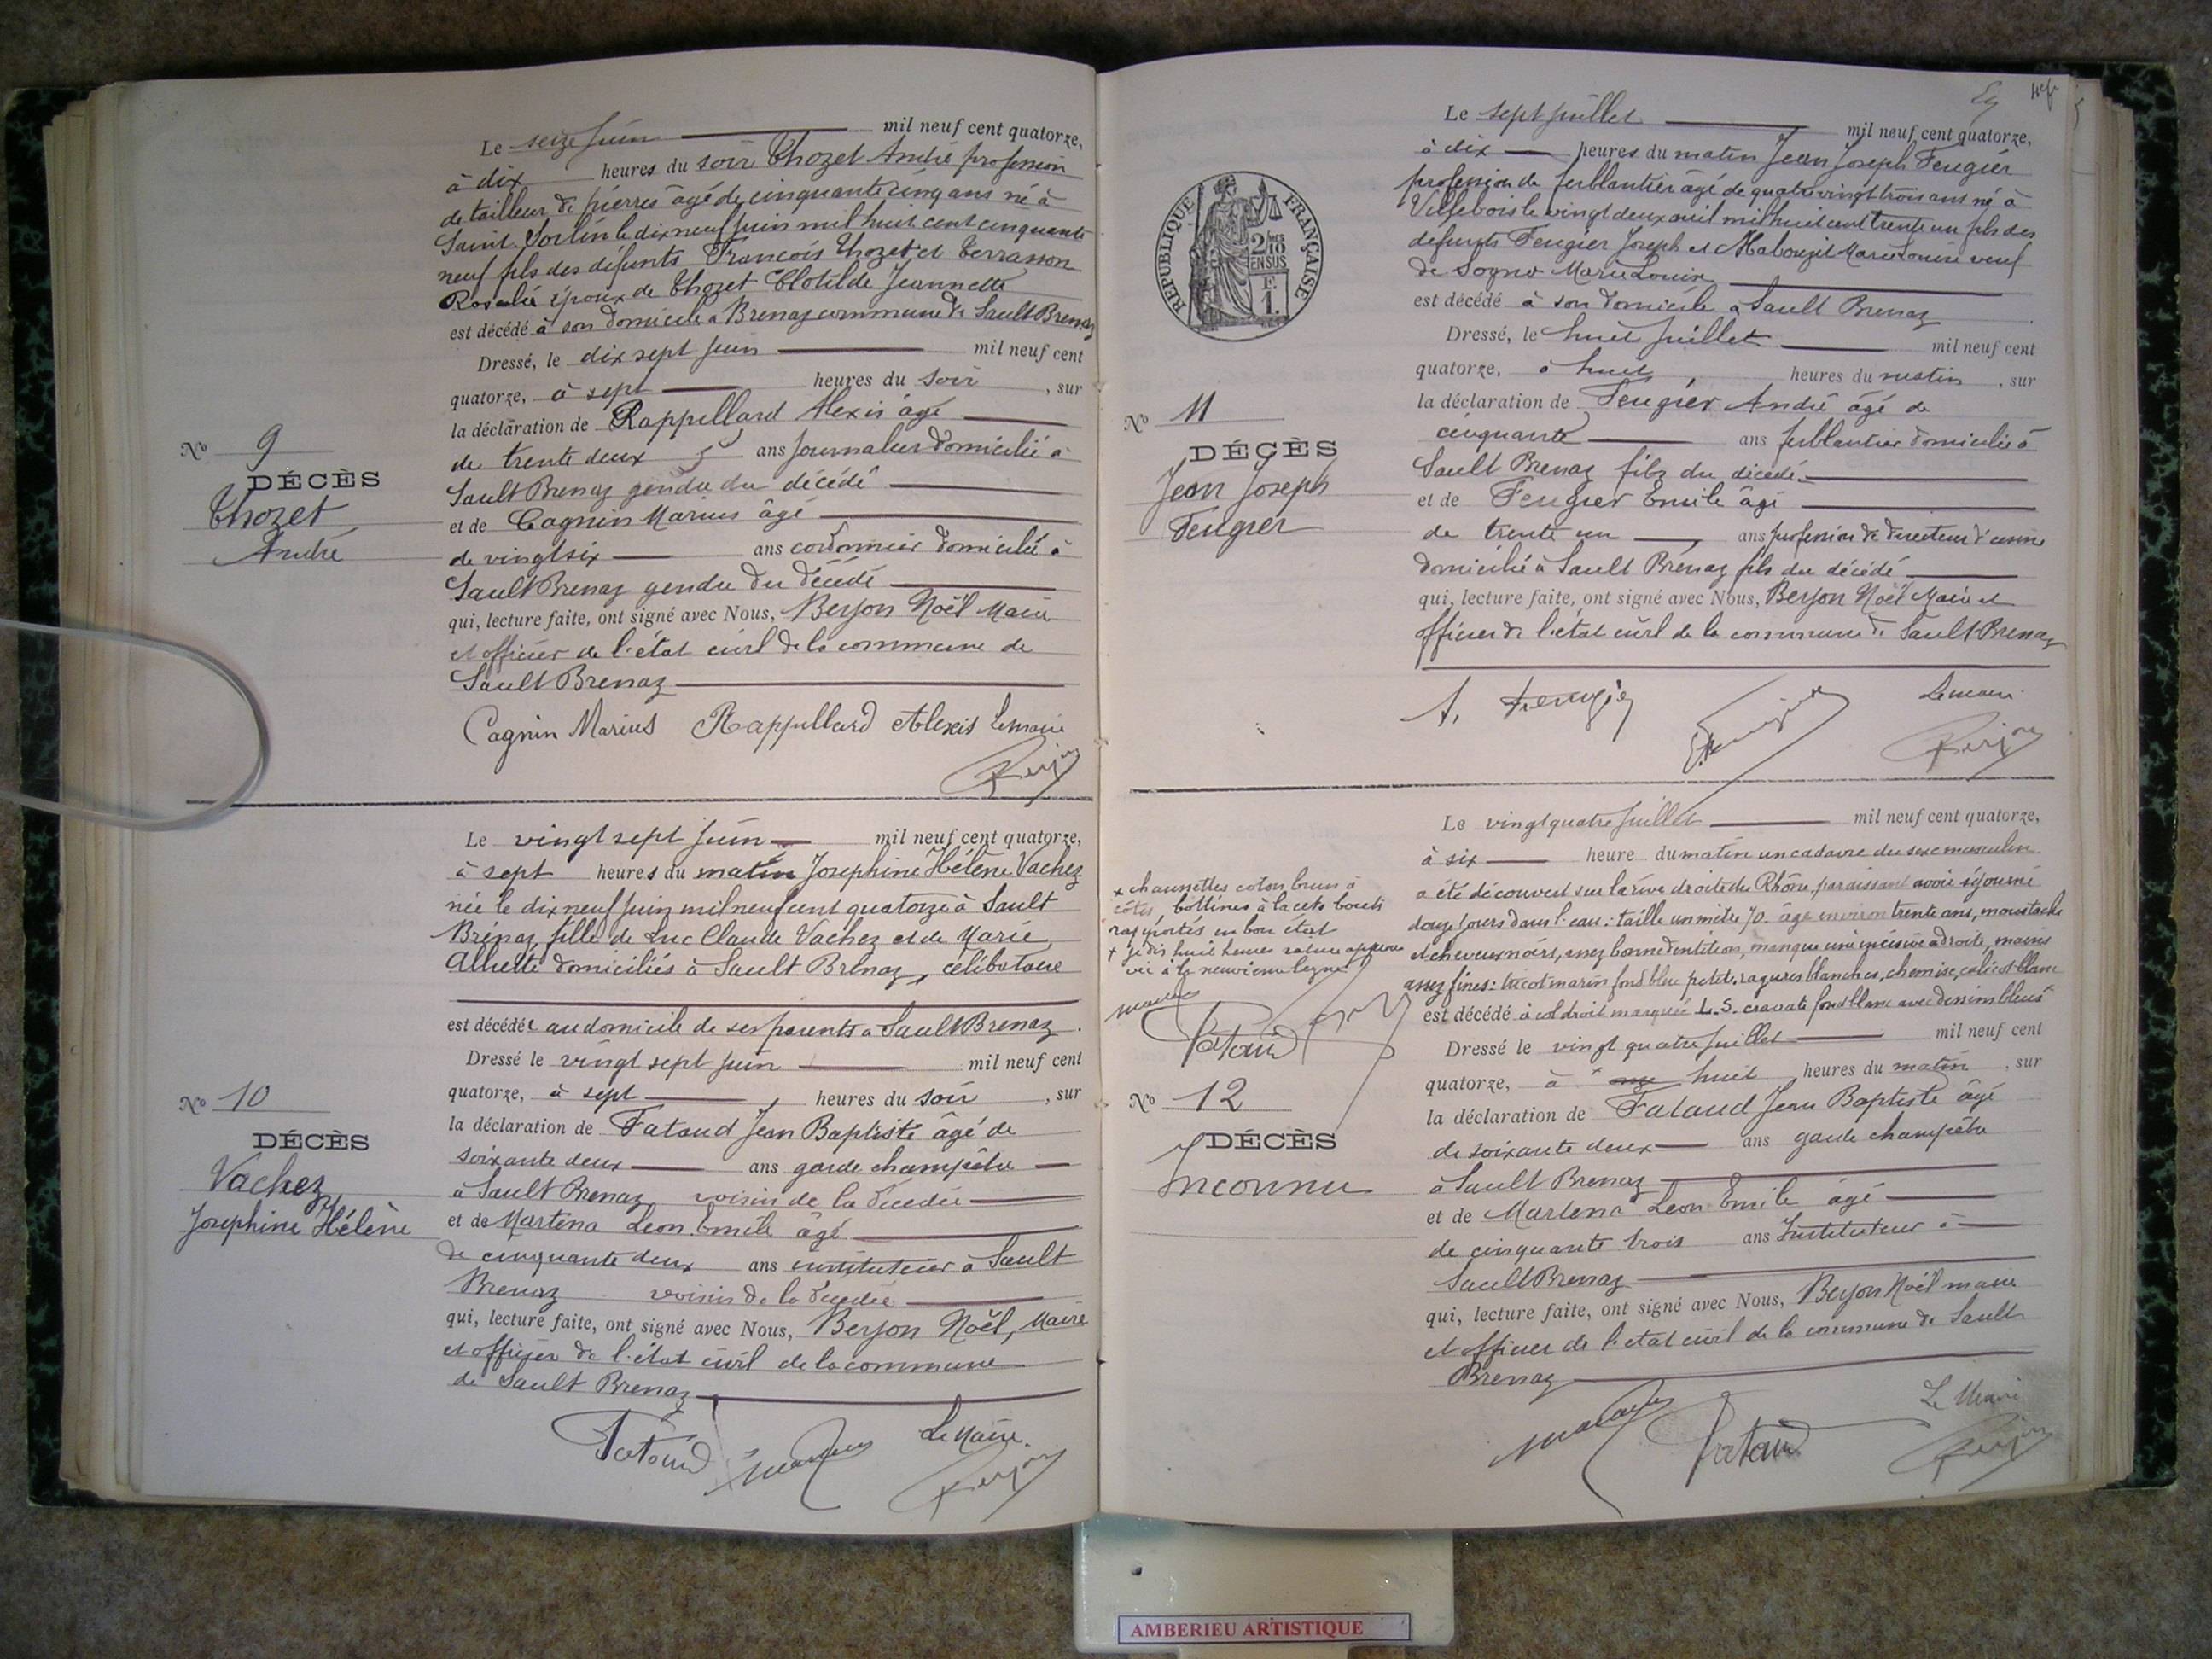 Le seize juin mil neuf cent quatorze,
à dix heures du soir Thozet André profession
de tailleur de pierres âgé de cinquante cinq ans né à
Saint Sorlin le dix neuf juin mil huit cent cinquante
neuf fils des défunts François Thozet et Terrasson
Rosalie époux de Thozet Clotilde Jeannette
est décédé à son domicile à Brenaz commune de Sault Brenaz
Dressé, le dix sept juin mil neuf cent
quatorze, à sept heures du soir, sur
la déclaration de Rappellard Alexis âgé
de trente deux ans journalier domicilié à
Sault Brenaz gendre du décédé
et de Cagnin Marius âgé
de vingt six ans cordonnier domicilié à
Sault Brenaz gendre du décédé
qui, lecture faite, ont signé avec Nous, Berjon Noël Maire
et officier de l'état civil de la commune de
Sault Brenaz
Cagnin Marius Rappellard Alexis Le maire
Berjon
No 9
DÉCÈS
Thozet
André
Le vingt sept juin mil neuf cent quatorze,
à sept heures du matin Josephine Hélène Vachez
née le dix neuf juin mil neuf cent quatorze à Sault
Brénaz, fille de Luc Claude Vachez et de Marie
domiciliés à Sault Brénaz, célibataire
est décédée au domicile de ses parents à Sault Brenaz.
Dressé le vingt sept juin mil neuf cent
quatorze, à sept heures du soir, sur
la déclaration de Fataud Jean Baptiste âgé de
soixante deux ans garde champêtre
à Sault Brenaz voisin de la décédée
et de Martena Leon Emile âgé
de cinquante deux ans instituteur à Sault
Brenaz voisin de la décédée
qui, lecture faite, ont signé avec Nous, Berjon Noël, Maire
et officier de l'état civil de la commune
de Sault Brenaz
Fataud Le Maire.
Berjon
No 10
DÉCÈS
Vachez
Josephine Hélène
Le sept juillet mil neuf cent quatorze,
à dix heures du matin Jean Joseph Feugier
profession de ferblantier âgé de quatre vingt trois ans né à
le vingt deux avril mil huit cent trente un fils des
défunts Feugier Joseph et Marie Louise veuf
de Sogno Marie Louise
est décédé à son domicile à Sault Brenaz
Dressé, le huit juillet mil neuf cent
quatorze, à huit heures du matin, sur
la déclaration de Feugier André âgé de
cinquante ans ferblantier domicilié à
Sault Brenaz fils du décédé
et de Feugier Emile âgé
de trente un ans profession de directeur d'usine
domicilié à Sault Brénaz fils du décédé
qui, lecture faite, ont signé avec Nous, Berjon Noël Maire et
officier de l'état civil de la commune de Sault-Brenaz
A. Feugier Le maire
Berjon
REPUBLIQUE FRANÇAISE
2/10 EN SUS
F. 1.
No 11
DÉCÈS
Jean Joseph
Feugier
Le vingt quatre juillet mil neuf cent quatorze,
à six heure du matin un cadavre du sexe masculin
a été découvert sur la rive droite du Rhône paraissant avoir séjourné
douze jours dans l'eau: taille un mètre 70. âge environ trente ans, moustache
et cheveux noirs, assez bonne dentition, manque une incisive à droite, mains
assez fines: tricot marin fond bleu petites rayures blanches, chemise, calicot blanc
est décédé à col droit marquée L.S. cravate fond blanc avec dessins bleus
Dressé le vingt quatre juillet mil neuf cent
quatorze, à huit heures du matin, sur
la déclaration de Fataud Jean Baptiste âgé
de soixante deux ans garde champêtre
à Sault Brenaz
et de Martena Leon Emile âgé
de cinquante trois ans Instituteur à
Sault Brenaz
qui, lecture faite, ont signé avec Nous, Berjon Noël maire
et officier de l'état civil de la commune de Sault
Brenaz
Fataud Le Maire
Berjon
x chaussettes coton brun à
côtes bottines à lacets bouts
rapportés en bon état
Fataud
No 12
DÉCÈS
Inconnu
AMBERIEU ARTISTIQUE